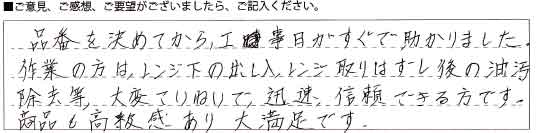 ■ご意見、ご感想、ご要望がございましたら、ご記入ください。
品番を決めてから、工事日がすぐで助かりました。
作業の方は、レンジ下の出し入、レンジ取りはずし後の油汚
除去等、大変ていねいで、迅速、信頼できる方です。
商品も高級感あり大満足です。